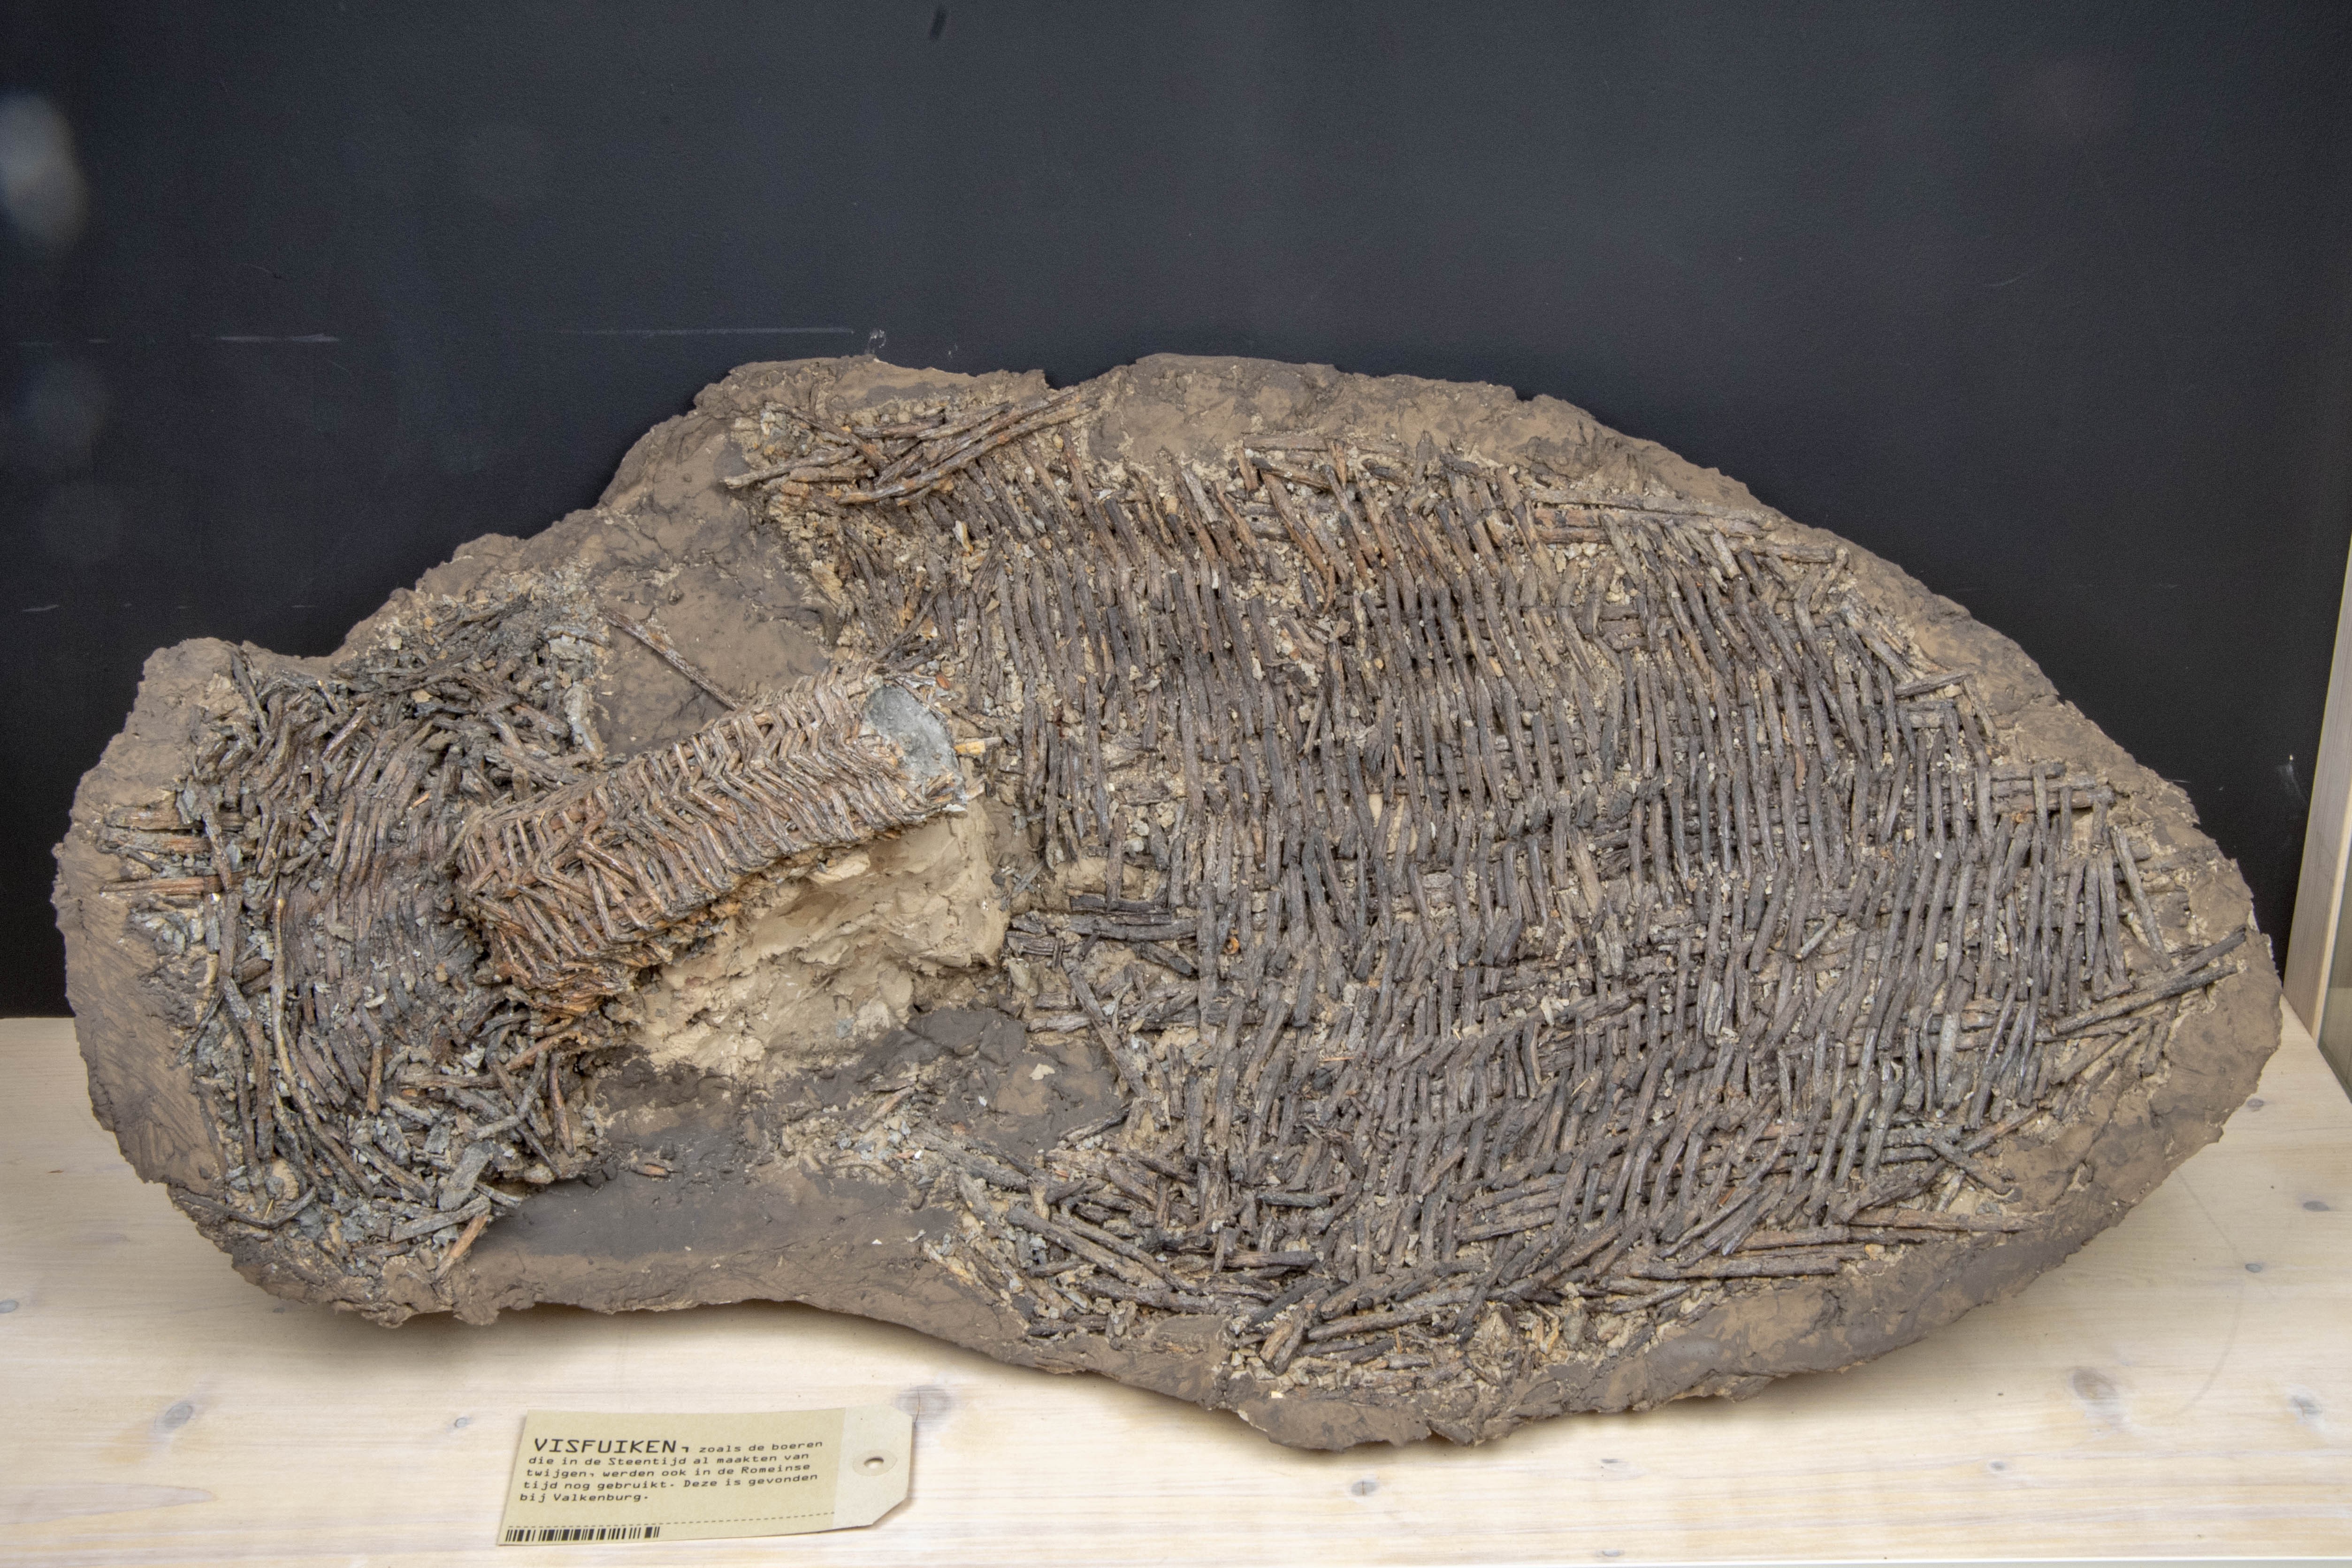 VISFUIKEN, zoals de boeren
die in de Steentijd al maakten van
twijgen, werden ook in de Romeinse
tijd nog gebruikt. Deze is gevonden
bij Valkenburg.